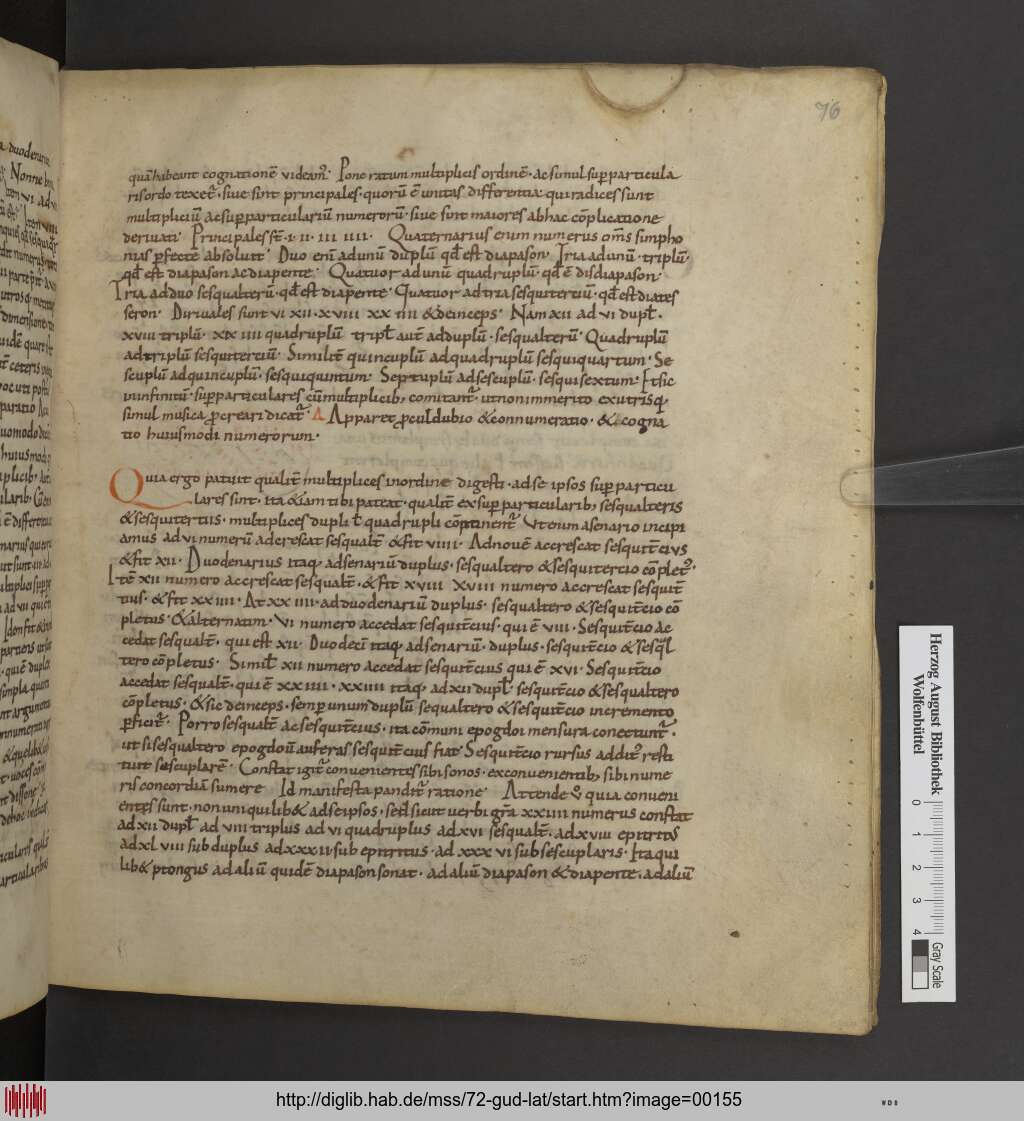 76
quā habeant cognationē videam᷒. Pone ratum multiplicis ordinē. ac simul sup̄particula
ris ordo texet᷒. siue sint principales. quorū ē unitas differentia qui radices sunt
multipliciū ac sup̄particulariū numerorū. siue sint maiores ab hac cōplicatione
deriuati. Principales st̄. I. II. III IIII. Quaternarius enim numerus om̄s simpho
nias p̄fecte absoluit. Duo enī ad unū duplū qđ est diapason. Tria ad unū. triplū.
qđ est diapason ac diapente. Quatuor ad unū quadruplū. qđ ē disdiapason.
Tria ad duo sesqualterū. qđ est diapente. Quatuor ad tria sesquitertiū. qđ est diates
seron. Diriuales sunt VI XII. XVIII XX IIII & deinceps. Nam XII ad VI dupł.
XVIII triplū. XX IIII quadruplū tripł aut̄ ad duplū. sesqualterū. Quadruplū
ad triplū sesquitertiū. Similit̄ quincuplū ad quadruplū sesquiquartum. Se
scuplū ad quincuplū. sesquiquintum. Septuplū ad sescuplū. sesquisextum. Et sic
in infinitū. sup̄particulares cū multiplicib; comitant᷒. ut non immerito ex utrisq;
simul musica p̄creari dicat᷒. A Apparet p̄cul dubio & connumeratio. & cogna
tio huiusmodi numerorum.
Quia ergo patuit qualit̄ multiplices in ordine digesti. ad se ipsos sup̄particu
lares sint. ita & iam tibi pateat. qualit̄ ex sup̄particularib; sesqualteris
& sesquitertiis. multiplices dupli ł quadrupli cōptinent᷒. Ut enim a senario incipi
amus ad VI numerū adcrescat sesqualt̄ & fit VIIII. Ad nouē accrescat sesquit̄cius
& fit XII. Duodenarius itaq; ad senariū duplus. sesqualtero & sesquitercio cōplet᷒.
Itē XII numero accrescat sesqualt̄. & fit XVIII XVIII numero accrescat sesquit̄
tius. & fit XX IIII. At XX IIII. ad duodenariū duplus. sesqualtero & sesquit̄cio cō
pletus. & alternatim. VI numero accedat sesquit̄cius. qui ē VIII. Sesquit̄cio ac
cedat sesqualt̄. qui est XII. Duodecī itaq; ad senariū. duplus. sesquit̄cio & sesq᷒l
tero cōpletus. Simił XII numero accedat sesquit̄cius qui ē XVI. Sesquit̄cio
accedat sesqualt̄. qui ē XXIIII. XXIIII itaq; ad XII dupł. sesquit̄cio & sesqualtero
cōpletus. & sic deinceps. semp̄ unum duplū sequaltero & sesquit̄cio incremento
p̄ficit᷒. Porro sesqualt̄ ac sesquit̄cius. ita cōmuni epogdoi mensura conectunt᷒.
ut si sesqualtero epogdoū auferas sesquit̄cius fiat. Sesquit̄cio rursus addit᷒ resti
tuit sescuplarē. Constat igit᷒ convenientes sibi sonos. ex convenientib; sibi nume
ris concordiā sumere Id manifesta pandit᷒ ratione Attende quia conveni
entes sunt. non uni quilib& ad se ipsos. sed sicut verbi grā XXIIII numerus constat
ad XII dupł ad VIII triplus ad VI quadruplus ad XVI sesqualt̄. ad XVIII epitritus
ad XL VIII sub duplus ad XXXII sub epitritus. ad XXX VI sub sescuplaris. Ita qui
lib& ptongus ad aliū quidē diapason sonat. ad aliū diapason & diapente. ad aliū
Herzog August Bibliothek
Wolfenbüttel
0 1 2 3 4
Gray Scale
http://diglib.hab.de/mss/72-gud-lat/start.htm?image=00155